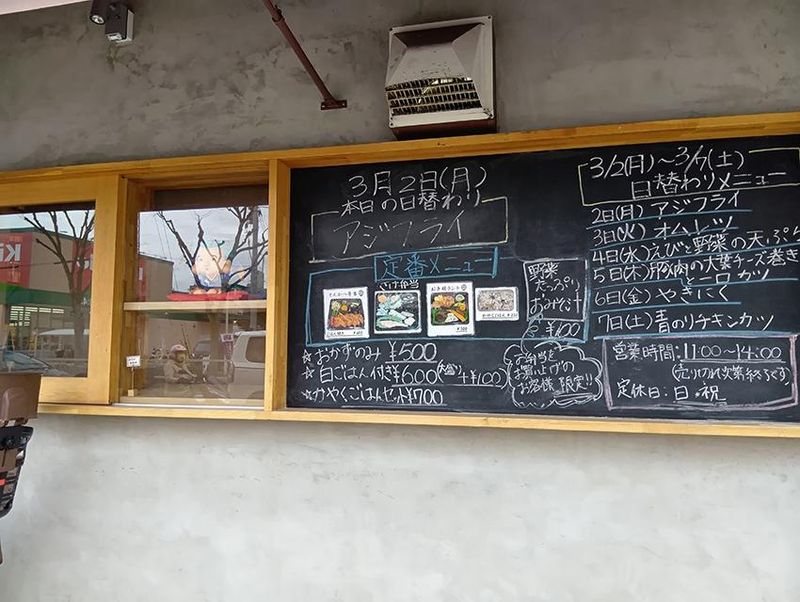 3月2日(月)
本日の日替わり
アジフライ
定番メニュー
さけ弁当
☆おかずのみ ¥500
☆白ごはん付き¥600(大盛り+¥100)
☆かやくごはんセット¥700
野菜
たっぷり
おみそ汁
¥100
お弁当を
お買上げの
お客様限定!!
3/2(月)~3/7(土)
日替わりメニュー
2日(月) アジフライ
3日(火) オムレツ
4日(水)えびと野菜の天ぷら
5日(木)豚肉の大葉チーズ巻き
と一口カツ
6日(金) やきにく
7日(土)青のりチキンカツ
営業時間:11:00~14:00
(売り切れ次第終了です)
定休日:日・祝
Ki